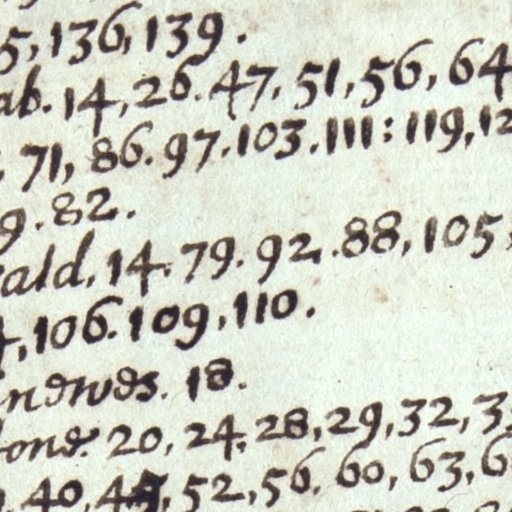 5, 136, 139.
ab. 14, 26. 47, 51, 56, 64
, 71, 86. 97. 103. 111: 119, 12
9. 82.
ald, 14. 79. 92. 88, 105,
4, 106. 109, 110.
ndrwes. 18.
one. 20, 24, 28, 29, 32, 3
, 40, 45, 52, 56. 60, 63, 6